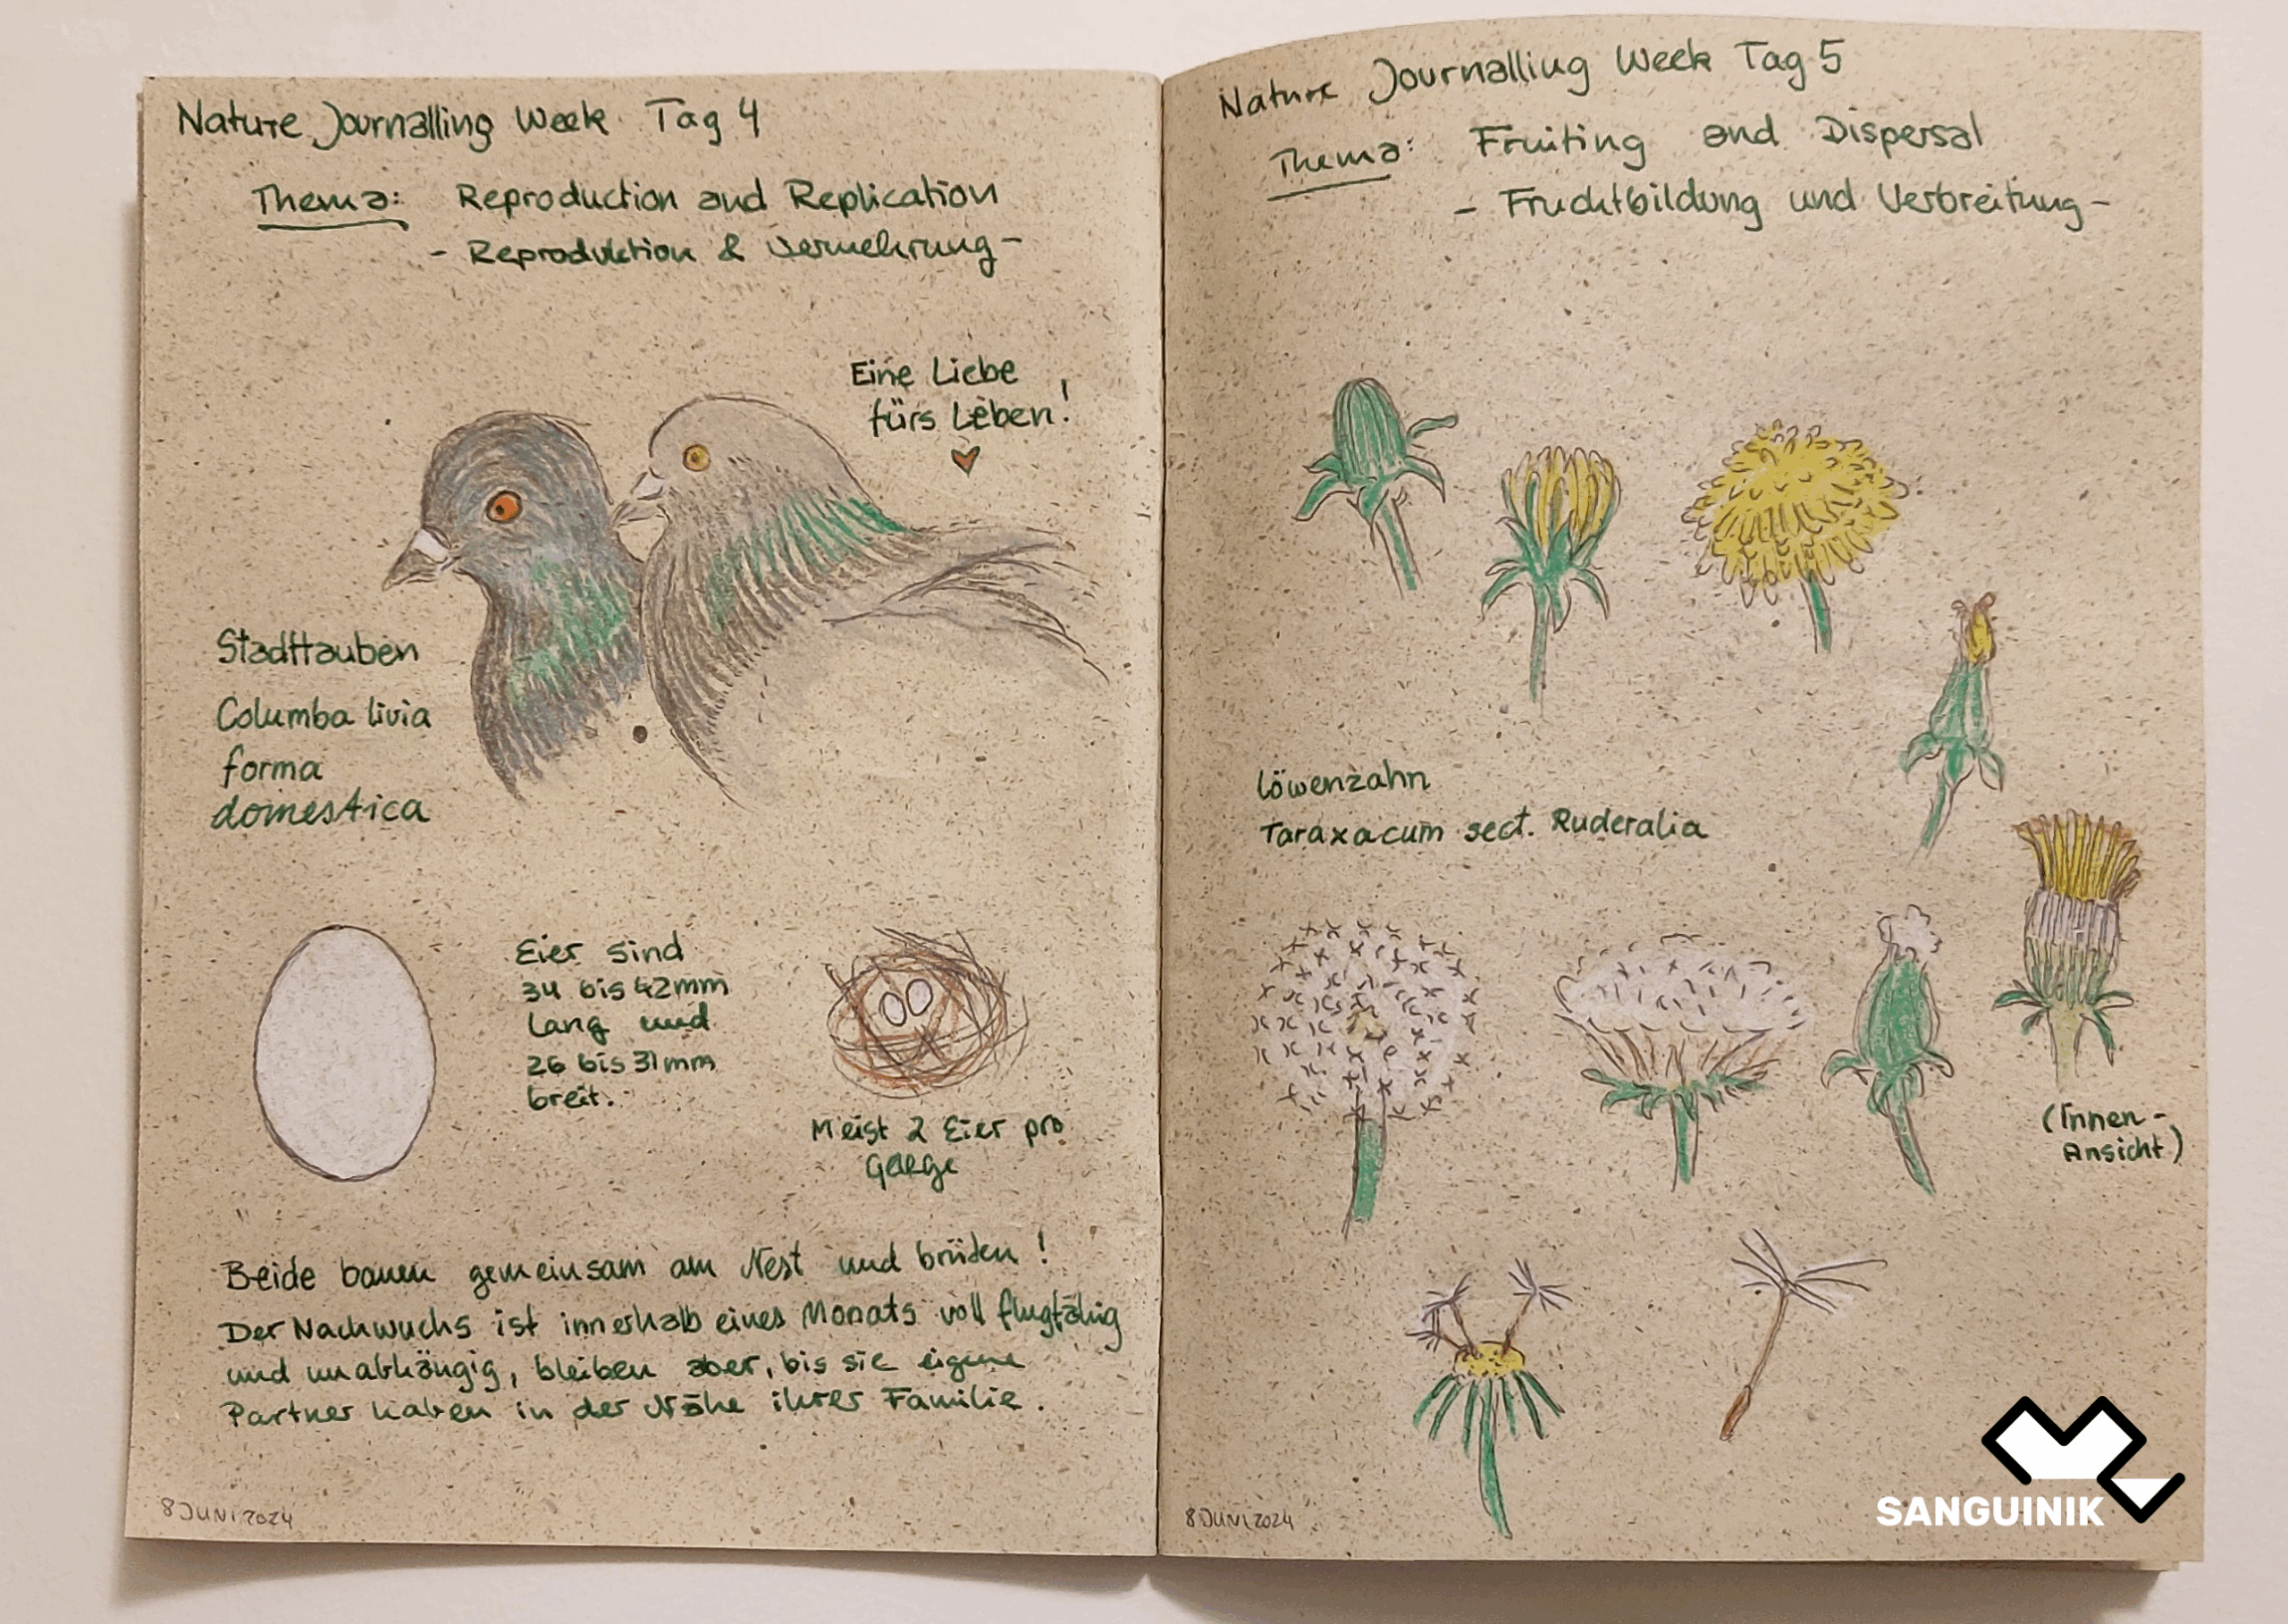 Nature Journalling Week Tag 4
Thema: Reproduction and Replication
- Reproduktion & Vermehrung -
Eine Liebe
fürs Leben!
Stadttauben
Columba livia
forma
domestica
Eier sind
34 bis 42mm
lang und
26 bis 31mm
breit.
Meist 2 Eier pro
Gelege
Beide bauen gemeinsam am Nest und brüten!
Der Nachwuchs ist innerhalb eines Monats voll flugfähig
und unabhängig, bleiben aber, bis sie eigene
Partner haben in der Nähe ihrer Familie.
8 JUNI 2024
Nature Journalling Week Tag 5
Thema: Fruiting and Dispersal
- Fruchtbildung und Verbreitung -
Löwenzahn
Taraxacum sect. Ruderalia
(Innen-
Ansicht)
8 JUNI 2024
SANGUINIK